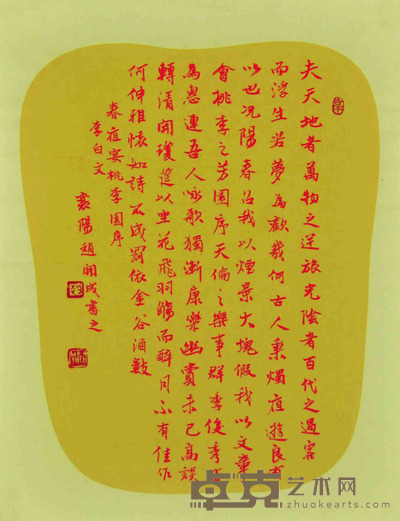 夫天地者萬物之逆旅光陰者百代之過客
而浮生若夢為歡幾何古人秉燭夜遊良有
以也況陽春召我以煙景大塊假我以文章
會桃李之芳園序天倫之樂事群季俊秀皆
為惠連吾人詠歌獨漸康樂幽賞未已高談
轉清開瓊筵以坐花飛羽觴而醉月不有佳作
何伸雅懷如詩不成罰依金谷酒數
春夜宴桃李園序
李白文
襄陽趙開成書之
卓克艺术网
http://www.zhuokearts.com